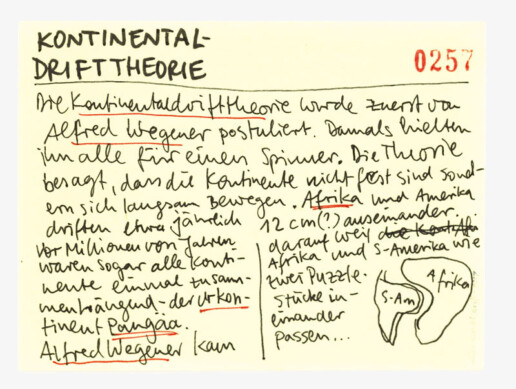 KONTINENTAL-
DRIFTTHEORIE
0257
Die Kontinentaldrifttheorie wurde zuerst von
Alfred Wegener postuliert. Damals hielten
ihn alle für einen Spinner. Die Theorie
besagt, dass die Kontinente nicht fest sind sond-
ern sich langsam bewegen. Afrika und Amerika
driften etwa jährlich 12 cm(?) auseinander.
Vor Millionen von Jahren
waren sogar alle Konti-
nente einmal zusam-
menhängend - der Urkon-
tinent Pangäa.
Alfred Wegener kam
darauf weil
Afrika und S-Amerika wie
zwei Puzzle-
Stücke in-
einander
passen...
S-Am
Afrika